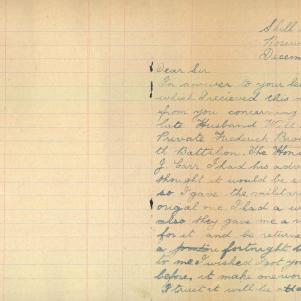 Shell
Decem
Dear Sir
In answer to your le
which I recieved this
from you concerning
late Husband Will
Private Frederick Bro
th Battalion. The Hon
J. Carr I had his adv
thought it would be s
so I gave the militar
origal one. I had a w
also they gave me a
for it and be returne
a fortnight
to me I wished I got yo
before, it make one wor
I trust it will be